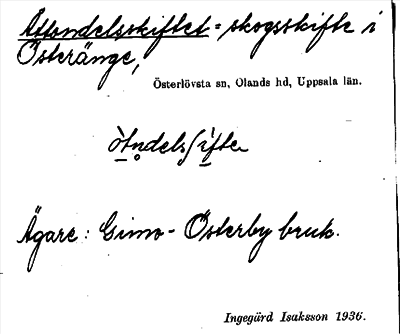 Åttondelsskiftet = skogsskifte i
Österänge,
Österlövsta sn, Olands hd, Uppsala län.
Ägare: Gimo-Österby bruk.
Ingegärd Isaksson 1936.